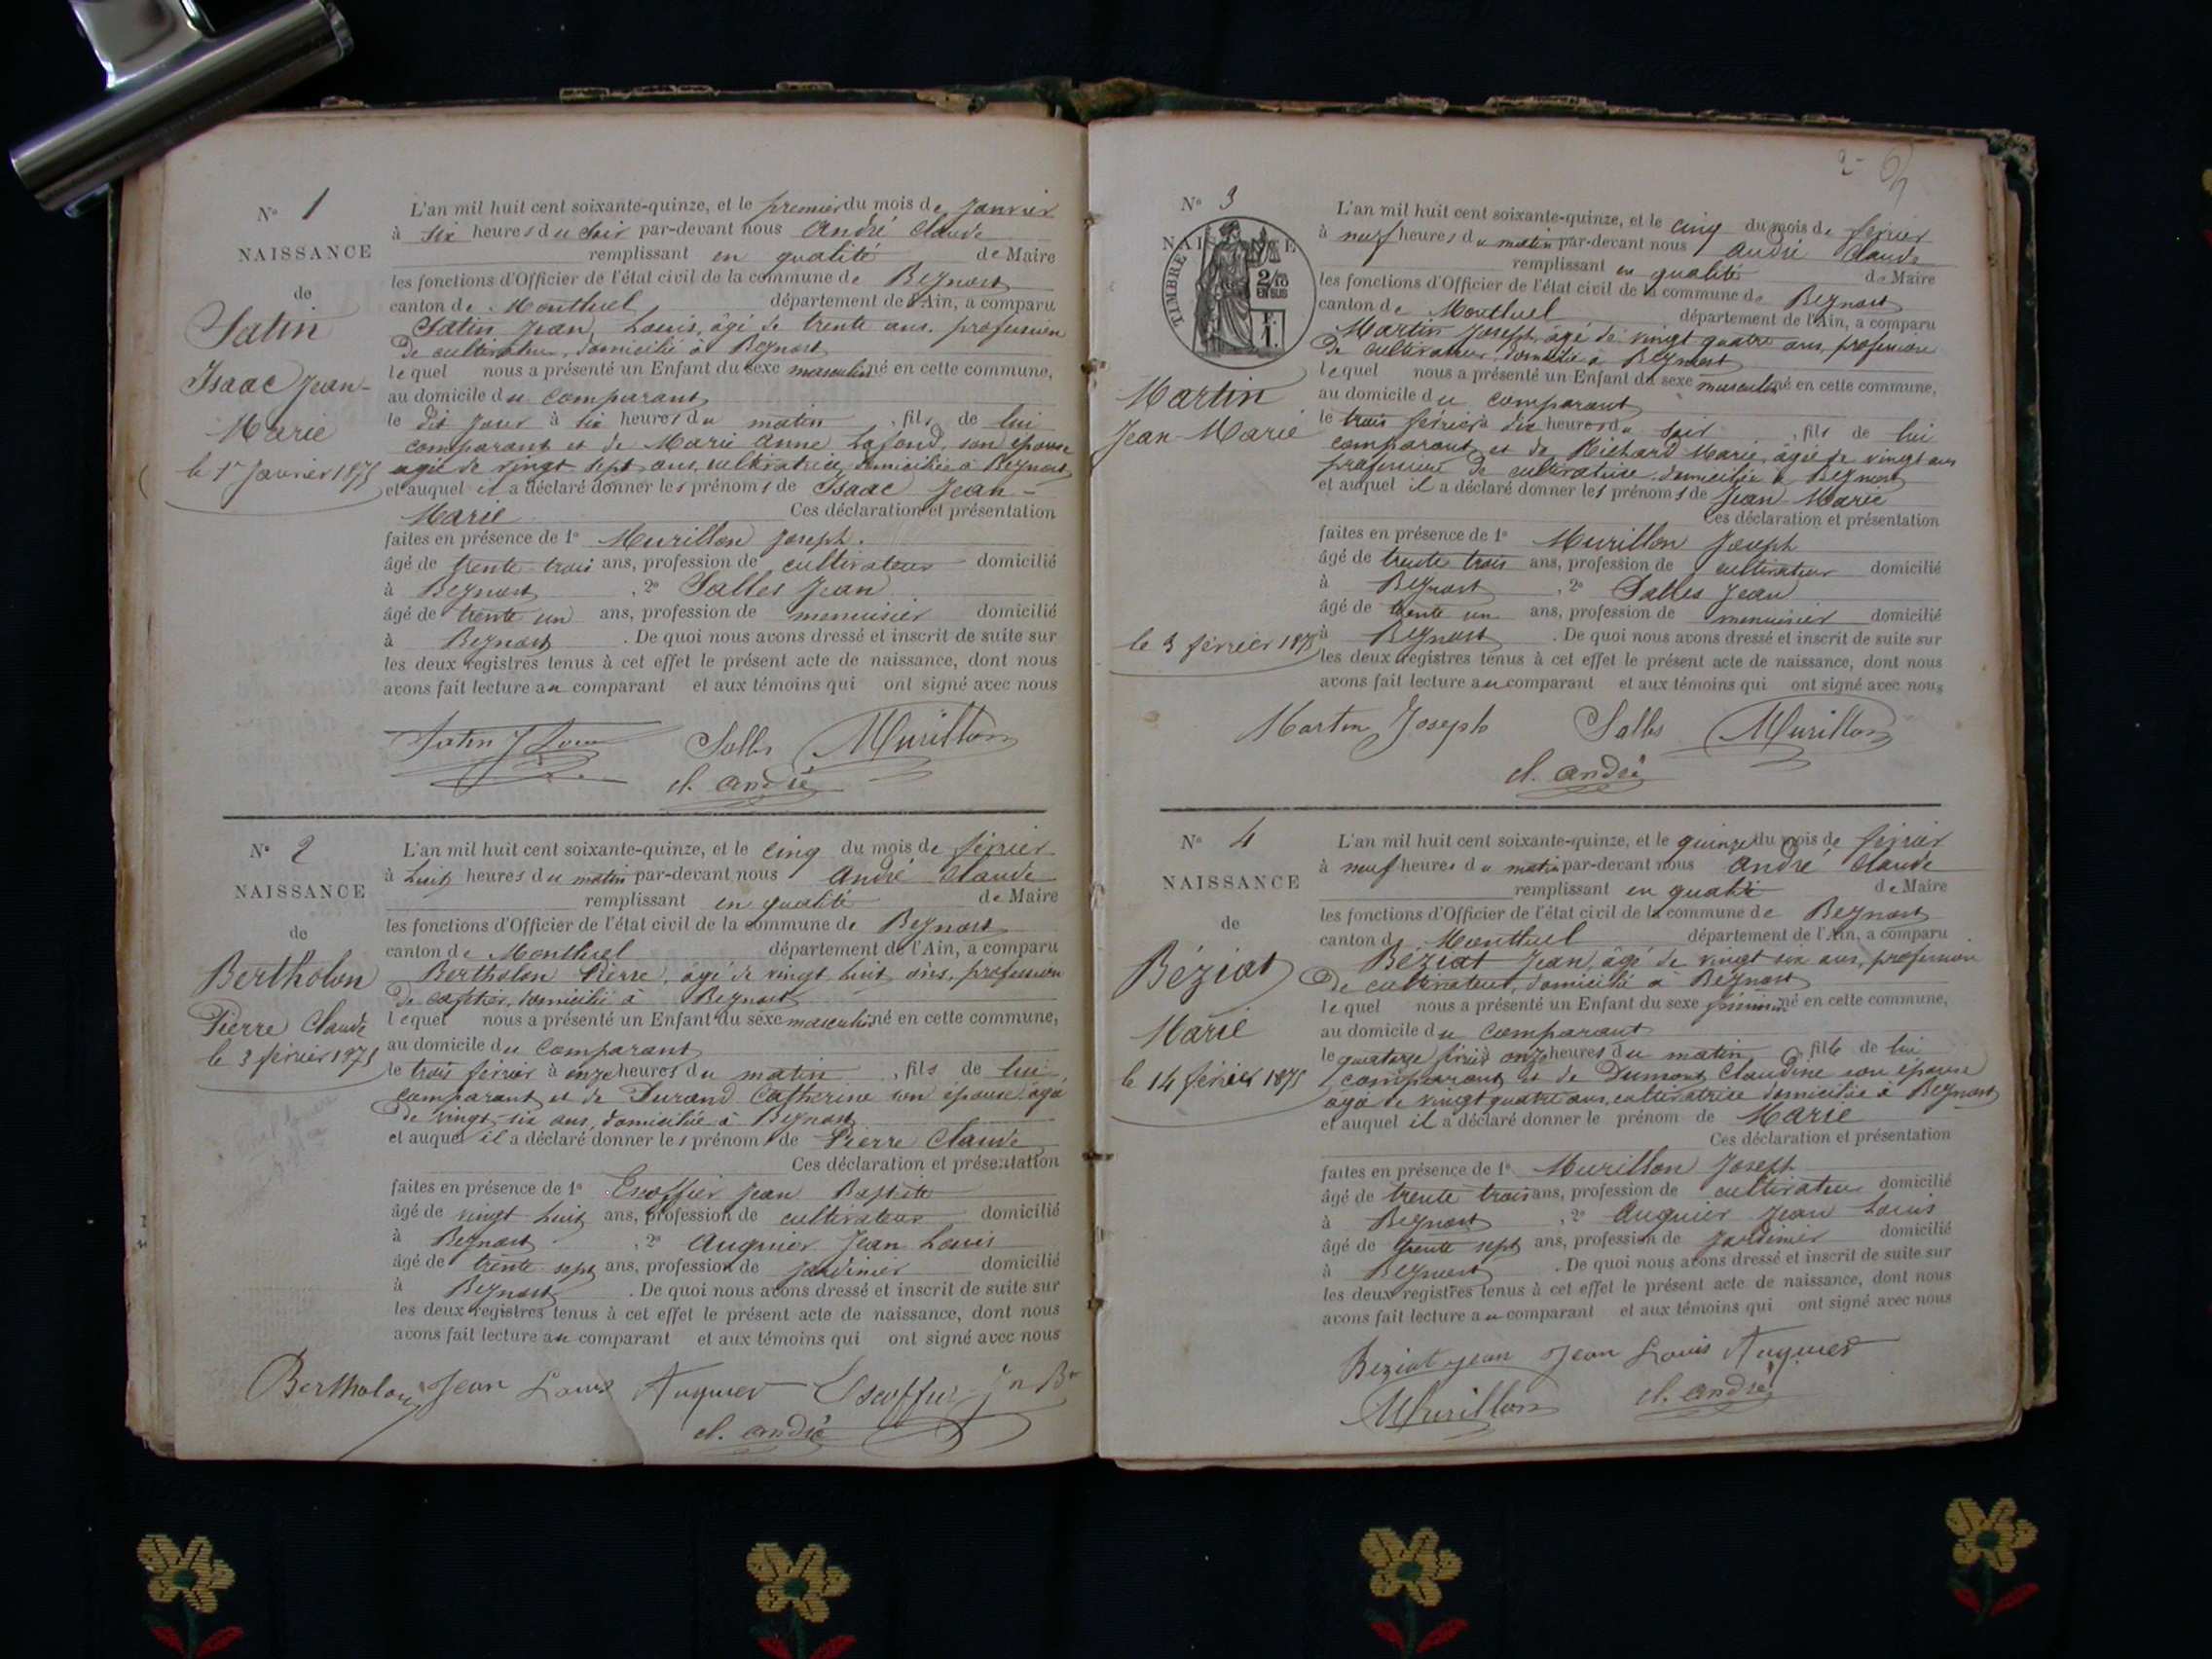 N° 1
NAISSANCE
de
Satin
Isaac Jean-
Marie
le 1er Janvier 1875
L'an mil huit cent soixante-quinze, et le premier du mois de Janvier
à six heures du soir par-devant nous André Claude
remplissant en qualité de Maire
les fonctions d'Officier de l'état civil de la commune de Beynost
canton de Montluel département de l'Ain, a comparu
Satin Jean Louis, âgé de trente ans, profession
de cultivateur, domicilié à Beynost
lequel nous a présenté un Enfant du sexe masculin né en cette commune,
au domicile du comparant
le dit jour à six heures du matin, fils de lui
comparant et de Marie Anne Lafond, son épouse
agée de vingt sept ans, cultivatrice, domiciliée à Beynost
et auquel il a déclaré donner les prénoms de Isaac Jean-
Marie Ces déclaration et présentation
faites en présence de 1° Murillon Joseph.
âgé de trente trois ans, profession de cultivateur domicilié
à Beynost, 2° Salles Jean
âgé de trente un ans, profession de menuisier domicilié
à Beynost. De quoi nous avons dressé et inscrit de suite sur
les deux registres tenus à cet effet le présent acte de naissance, dont nous
avons fait lecture au comparant et aux témoins qui ont signé avec nous
Satin J Louis Salles Murillon
cl. andré
N° 2
NAISSANCE
de
Bertholon
Pierre Claude
le 3 février 1875
L'an mil huit cent soixante-quinze, et le cinq du mois de février
à huit heures du matin par-devant nous André Claude
remplissant en qualité de Maire
les fonctions d'Officier de l'état civil de la commune de Beynost
canton de Montluel département de l'Ain, a comparu
Bertholon Pierre, âgé de vingt huit ans, profession
de domicilié à Beynost
lequel nous a présenté un Enfant du sexe masculin né en cette commune,
au domicile du comparant
le trois février à onze heures du matin, fils de lui
comparant et de Durand Catherine son épouse agé
de vingt six ans, domiciliée à Beynost
et auquel il a déclaré donner les prénoms de Pierre Claude
Ces déclaration et présentation
faites en présence de 1° Escoffier Jean Baptiste
âgé de vingt huit ans, profession de cultivateur domicilié
à Beynost, 2° Auguier Jean Louis
âgé de trente sept ans, profession de jardinier domicilié
à Beynost. De quoi nous avons dressé et inscrit de suite sur
les deux registres tenus à cet effet le présent acte de naissance, dont nous
avons fait lecture au comparant et aux témoins qui ont signé avec nous
Bertholon Jean Louis Auguier Escoffier Jn Bte
cl. andré
N° 3
NAISSANCE
TIMBRE
2/10
EN SUS
F.
1.
Martin
Jean-Marie
le 3 février 1875
L'an mil huit cent soixante-quinze, et le cinq du mois de février
à neuf heures du matin par-devant nous André Claude
remplissant en qualité de Maire
les fonctions d'Officier de l'état civil de la commune de Beynost
canton de Montluel département de l'Ain, a comparu
Martin Joseph, âgé de vingt quatre ans, profession
de cultivateur, domicilié à Beynost
lequel nous a présenté un Enfant du sexe masculin né en cette commune,
au domicile du comparant
le trois février à dix heures du soir, fils de lui
comparant et de Richard Marie, agée de vingt ans
profession de cultivatrice, domiciliée à Beynost
et auquel il a déclaré donner les prénoms de Jean Marie
Ces déclaration et présentation
faites en présence de 1° Murillon Joseph
âgé de trente trois ans, profession de cultivateur domicilié
à Beynost, 2° Salles Jean
âgé de trente un ans, profession de menuisier domicilié
à Beynost. De quoi nous avons dressé et inscrit de suite sur
les deux registres tenus à cet effet le présent acte de naissance, dont nous
avons fait lecture au comparant et aux témoins qui ont signé avec nous
Martin Joseph Salles Murillon
cl. andré
N° 4
NAISSANCE
de
Béziat
Marie
le 14 février 1875
L'an mil huit cent soixante-quinze, et le quinze du mois de février
à neuf heures du matin par-devant nous André Claude
remplissant en qualité de Maire
les fonctions d'Officier de l'état civil de la commune de Beynost
canton de Montluel département de l'Ain, a comparu
Béziat Jean, âgé de vingt six ans, profession
de cultivateur, domicilié à Beynost
lequel nous a présenté un Enfant du sexe féminin né en cette commune,
au domicile du comparant
le quatorze février à onze heures du matin, fille de lui
comparant et de Dumont Claudine son épouse
agé de vingt quatre ans, cultivatrice domiciliée à Beynost
et auquel il a déclaré donner le prénom de Marie
Ces déclaration et présentation
faites en présence de 1° Murillon Joseph
âgé de trente trois ans, profession de cultivateur domicilié
à Beynost, 2° Auguier Jean Louis
âgé de trente sept ans, profession de jardinier domicilié
à Beynost. De quoi nous avons dressé et inscrit de suite sur
les deux registres tenus à cet effet le présent acte de naissance, dont nous
avons fait lecture au comparant et aux témoins qui ont signé avec nous
Beziat jean Jean Louis Auguier
Murillon cl. andré